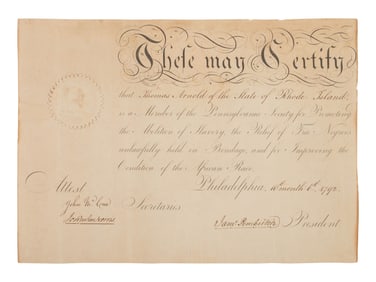 These may Certify
that Thomas Arnold of the State of Rhode Island
is a Member of the Pennsylvania Society for Promoting
the Abolition of Slavery, the Relief of Free Negroes
unlawfully held in Bondage, and for Improving the
Condition of the African Race.
Philadelphia, 10th month 6th 1792
Attest
John McCree
Secretaries
James Pemberton President